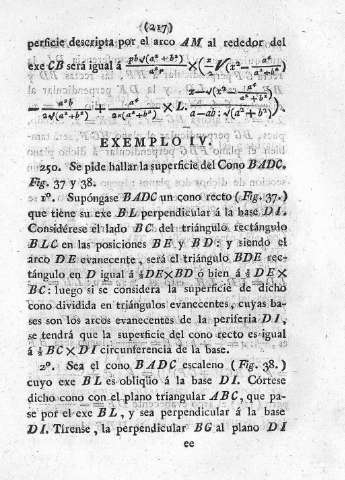 (217)
perficie descripta por el arco AM al rededor del
exe CB será igual á
EXEMPLO IV.
250. Se pide hallar la superficie del Cono BADC.
Fig. 37 y 38.
1º. Supóngase BADC un cono recto (Fig. 37.)
que tiene su exe BL perpendicular á la base DI.
Considérese el lado BC del triángulo rectángulo
BLC en las posiciones BE y BD: y siendo el
arco DE evanecente, será el triángulo BDE rec-
tángulo en D igual á ½DE×BD ó bien á ½DE×
BC: luego si se considera la superficie de dicho
cono dividida en triángulos evanecentes, cuyas ba-
ses son los arcos evanecentes de la periferia DI,
se tendrá que la superficie del cono recto es igual
á ½BC×DI circunferencia de la base.
2º. Sea el cono BADC escaleno (Fig. 38.)
cuyo exe BL es obliquo á la base DI. Córtese
dicho cono con el plano triangular ABC, que pa-
se por el exe BL, y sea perpendicular á la base
DI. Tirense, la perpendicular BG al plano DI
ee